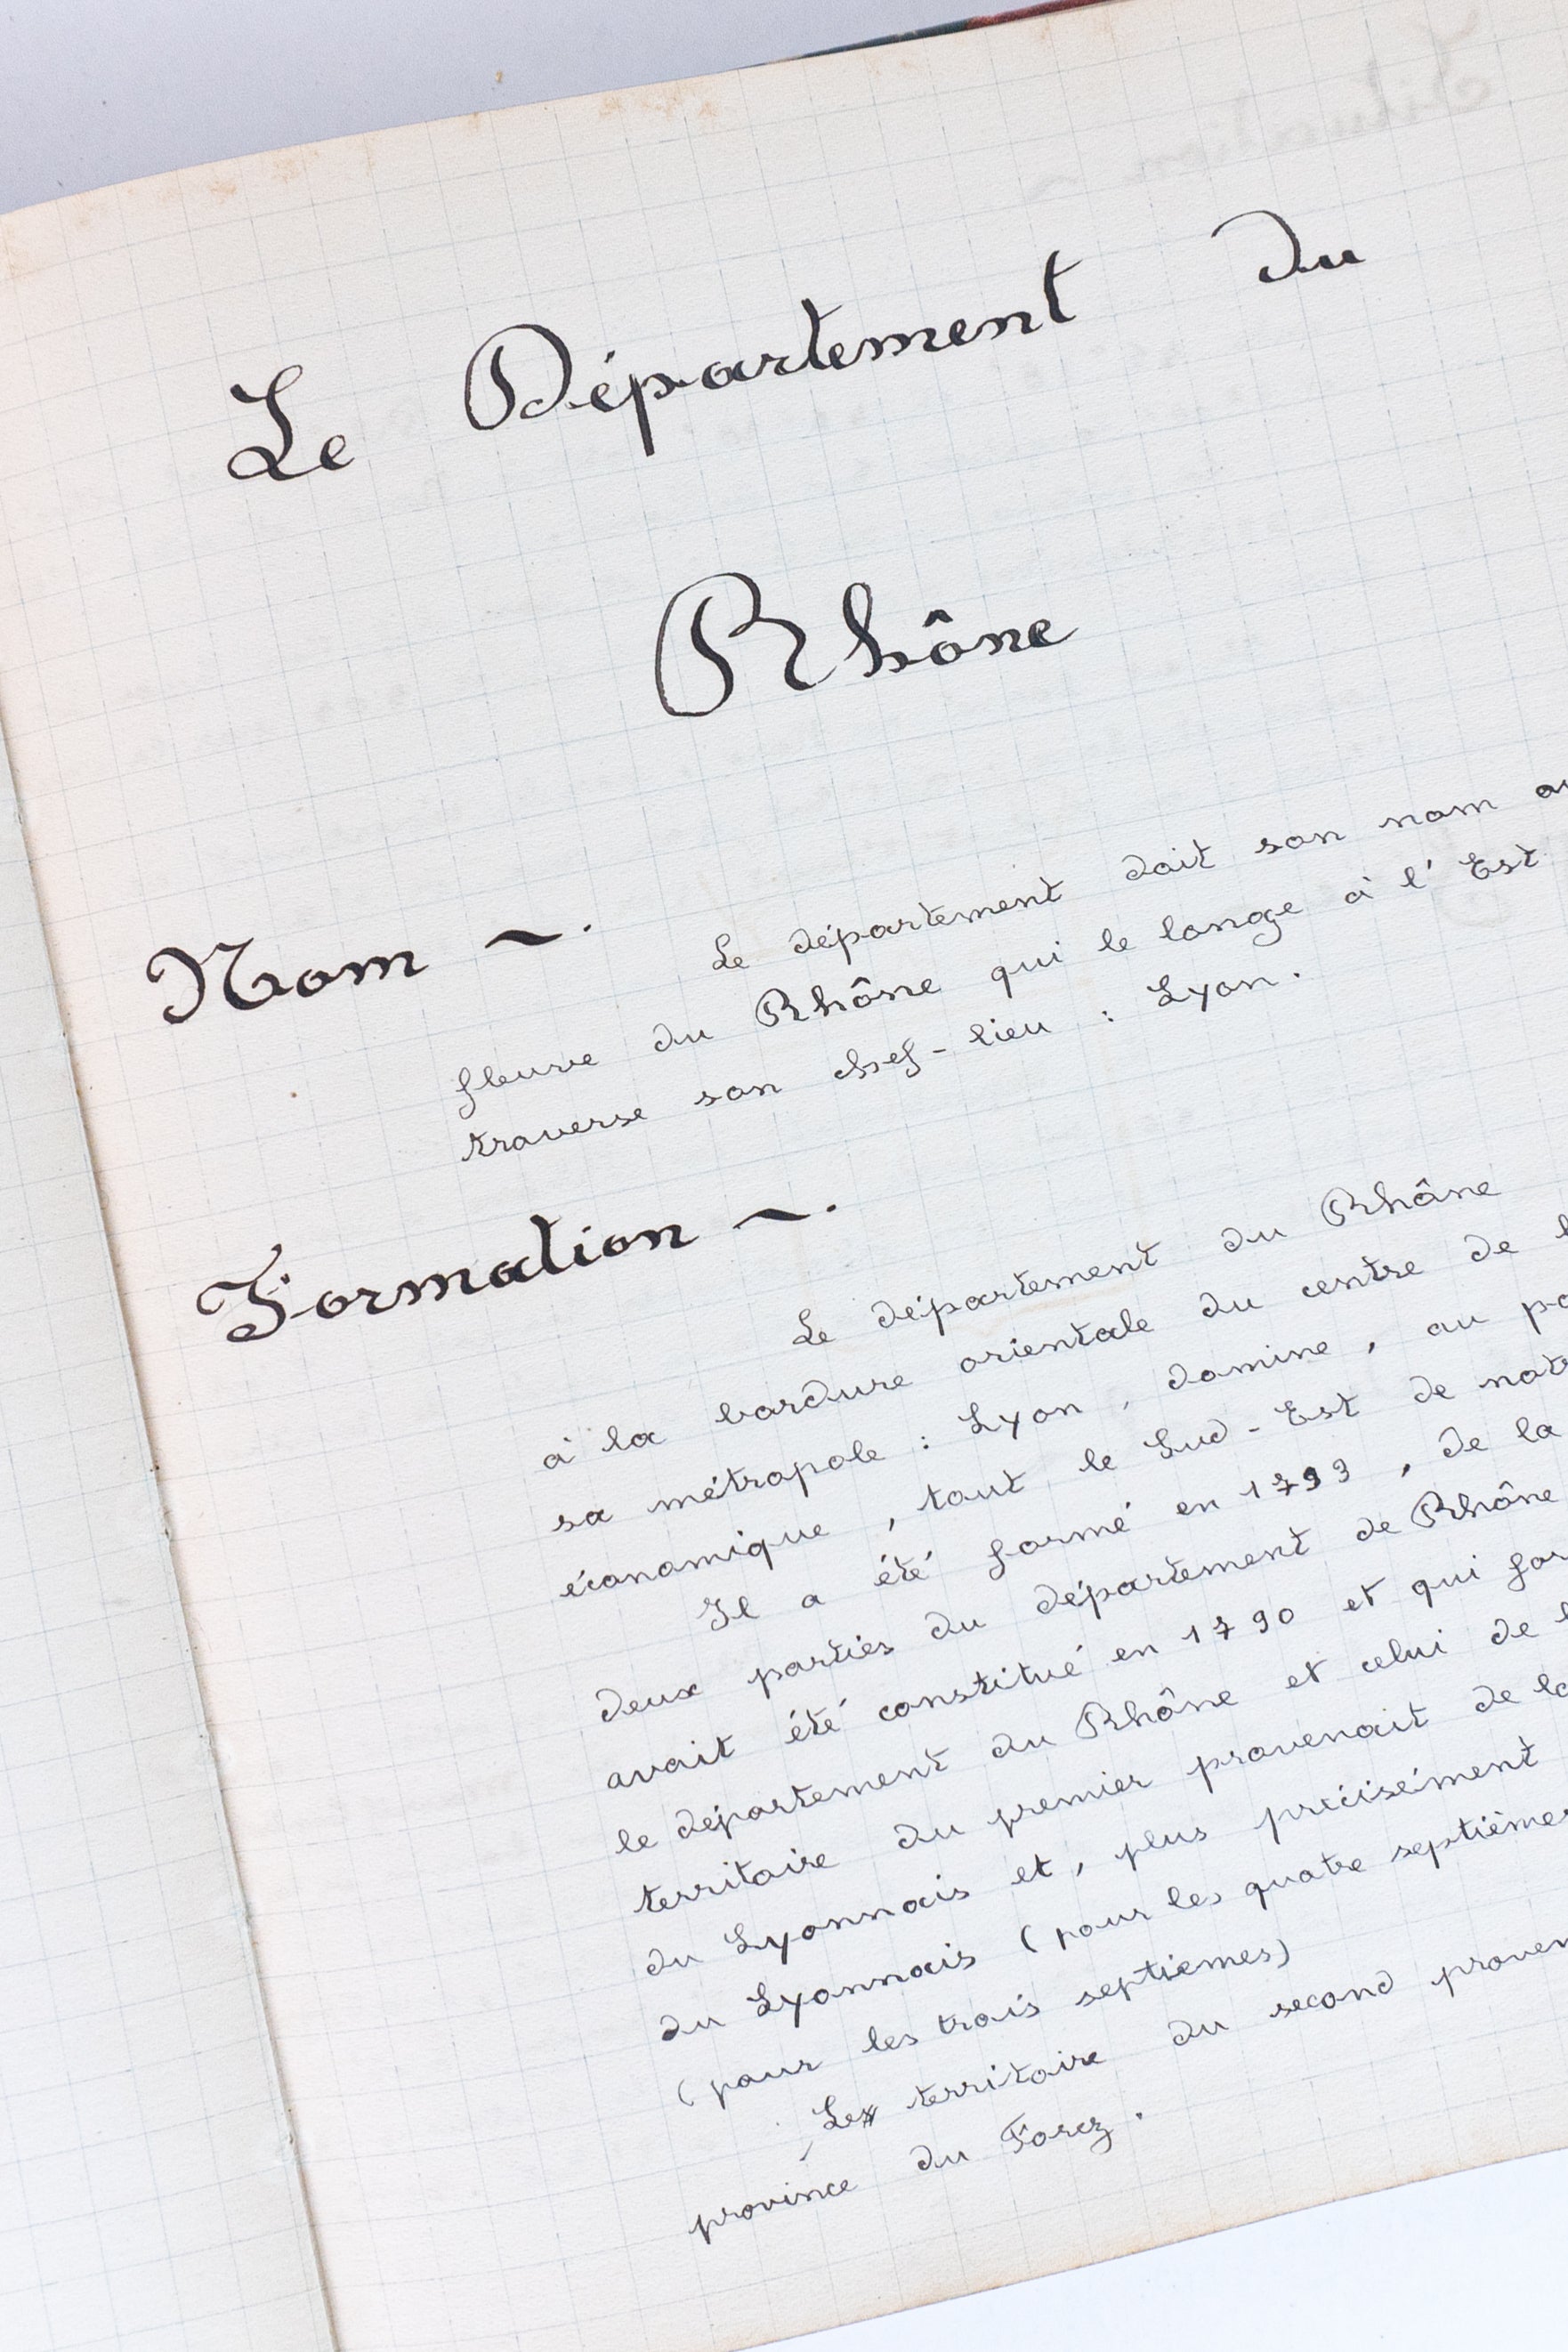 Le Département du
Rhône
Nom ~.
Le département doit son nom au
fleuve du Rhône qui le longe à l'Est
traverse son chef-lieu : Lyon.
Formation ~.
Le département du Rhône
à la bordure orientale du centre de l
sa métropole : Lyon, domine, au po
économique, tout le Sud-Est de notr
Il a été formé en 1793, de la
deux parties du département de Rhône
avait été constitué en 1790 et qui for
le département du Rhône et celui de l
territoire du premier provenait de la
du Lyonnais et, plus précisément
du Lyonnais (pour les quatre septièmes
(pour les trois septièmes)
Le territoire du second proven
province du Forez.